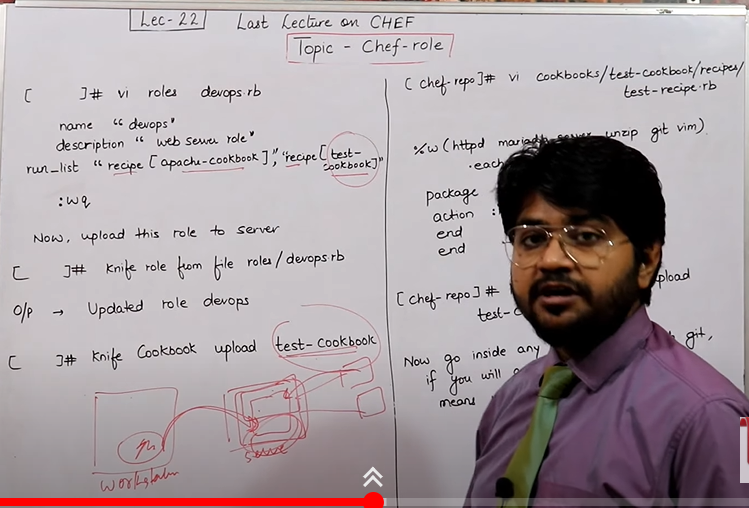 Lec-22
Last Lecture on CHEF
Topic - Chef-role
[ ]# vi roles devops.rb
name "devops"
description "web server role"
run_list "recipe[apache-cookbook]","recipe[test-cookbook]"
:wq
Now, upload this role to server
[ ]# Knife role from file roles/devops.rb
O/P → Updated role devops
[ ]# Knife Cookbook upload test-cookbook
workstation
[chef-repo]# vi cookbooks/test-cookbook/recipes/
test-recipe.rb
%w(httpd mariadb-server unzip git vim)
.each
package
action :
end
end
[chef-repo]# upload
test-c
Now go inside any git,
if you will
means